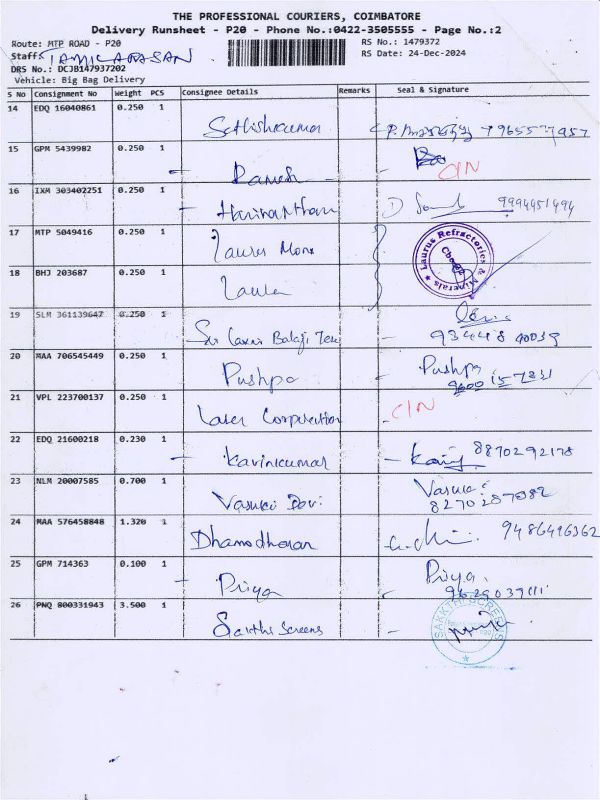 THE PROFESSIONAL COURIERS, COIMBATORE
Delivery Runsheet - P20 - Phone No.:0422-3505555 - Page No.:2
Route: MTP ROAD - P20
RS No.: 1479372
Staff: TAMILARASAN
RS Date: 24-Dec-2024
DRS No.: DCJB147937202
Vehicle: Big Bag Delivery
S No Consignment No Weight PCS Consignee Details Remarks Seal & Signature
14 EDQ 16040861 0.250 1 Sathishkumar
15 GPM 5439982 0.250 1 Ramesh CIN
16 IXM 303402251 0.250 1 9994451494
17 MTP 5049416 0.250 1 Laurus
Laurus Refractories & Minerals
18 BHJ 203687 0.250 1
19 SLM 361139647 0.250 1 Sri Laxmi Balaji
20 MAA 706545449 0.250 1 Pushpa Pushpa
21 VPL 223700137 0.250 1 Laser Corporation CIN
22 EDQ 21600218 0.230 1 Kavinkumar 8870292178
23 NLM 20007585 0.700 1 Vasuki Devi Vasuki
8270287082
24 MAA 576458848 1.320 1 Dhamodharan 9486496362
25 GPM 714363 0.100 1 Priya Priya
26 PNQ 800331943 3.500 1 Sakthi Screens
SAKKTHI SCREENS